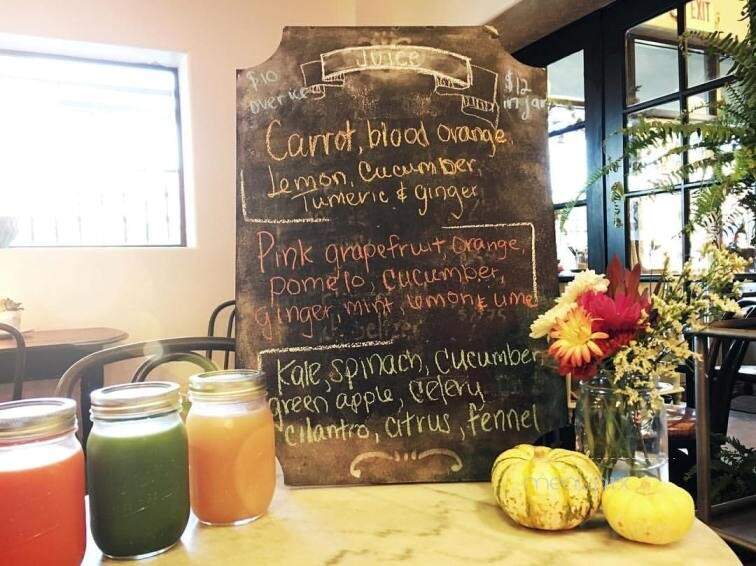 JUICE
$10
over ice
$12
in jar
Carrot, blood orange,
Lemon, Cucumber,
Tumeric & ginger
Pink grapefruit, orange,
pomelo, cucumber,
ginger, mint, lemon & lime
Kale, spinach, cucumber,
green apple, celery
cilantro, citrus, fennel
EXIT